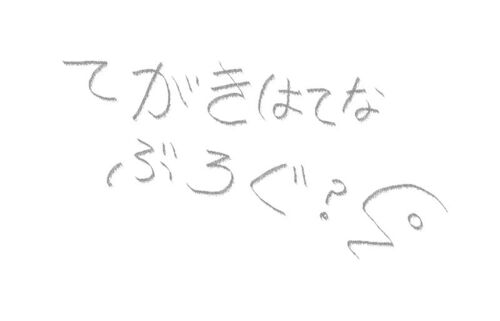 てがきはてな
ぶろぐ?